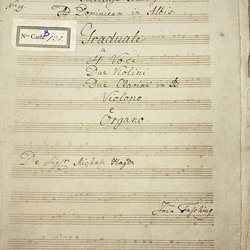 No 19.
Dominicam in Albis
Noc Cath: B 151
Graduale
a
4 Voci
Due Violini
Due Clarini in B
Violone
e
Organo
De Sigre Michale Haydn
Joh: Fasching